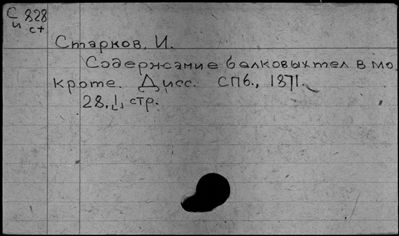 С 828
и ст
Старков, И.
Содержание белковых тел в мо
кроте. Дисс. СПб., 1871.
28, 1, стр.